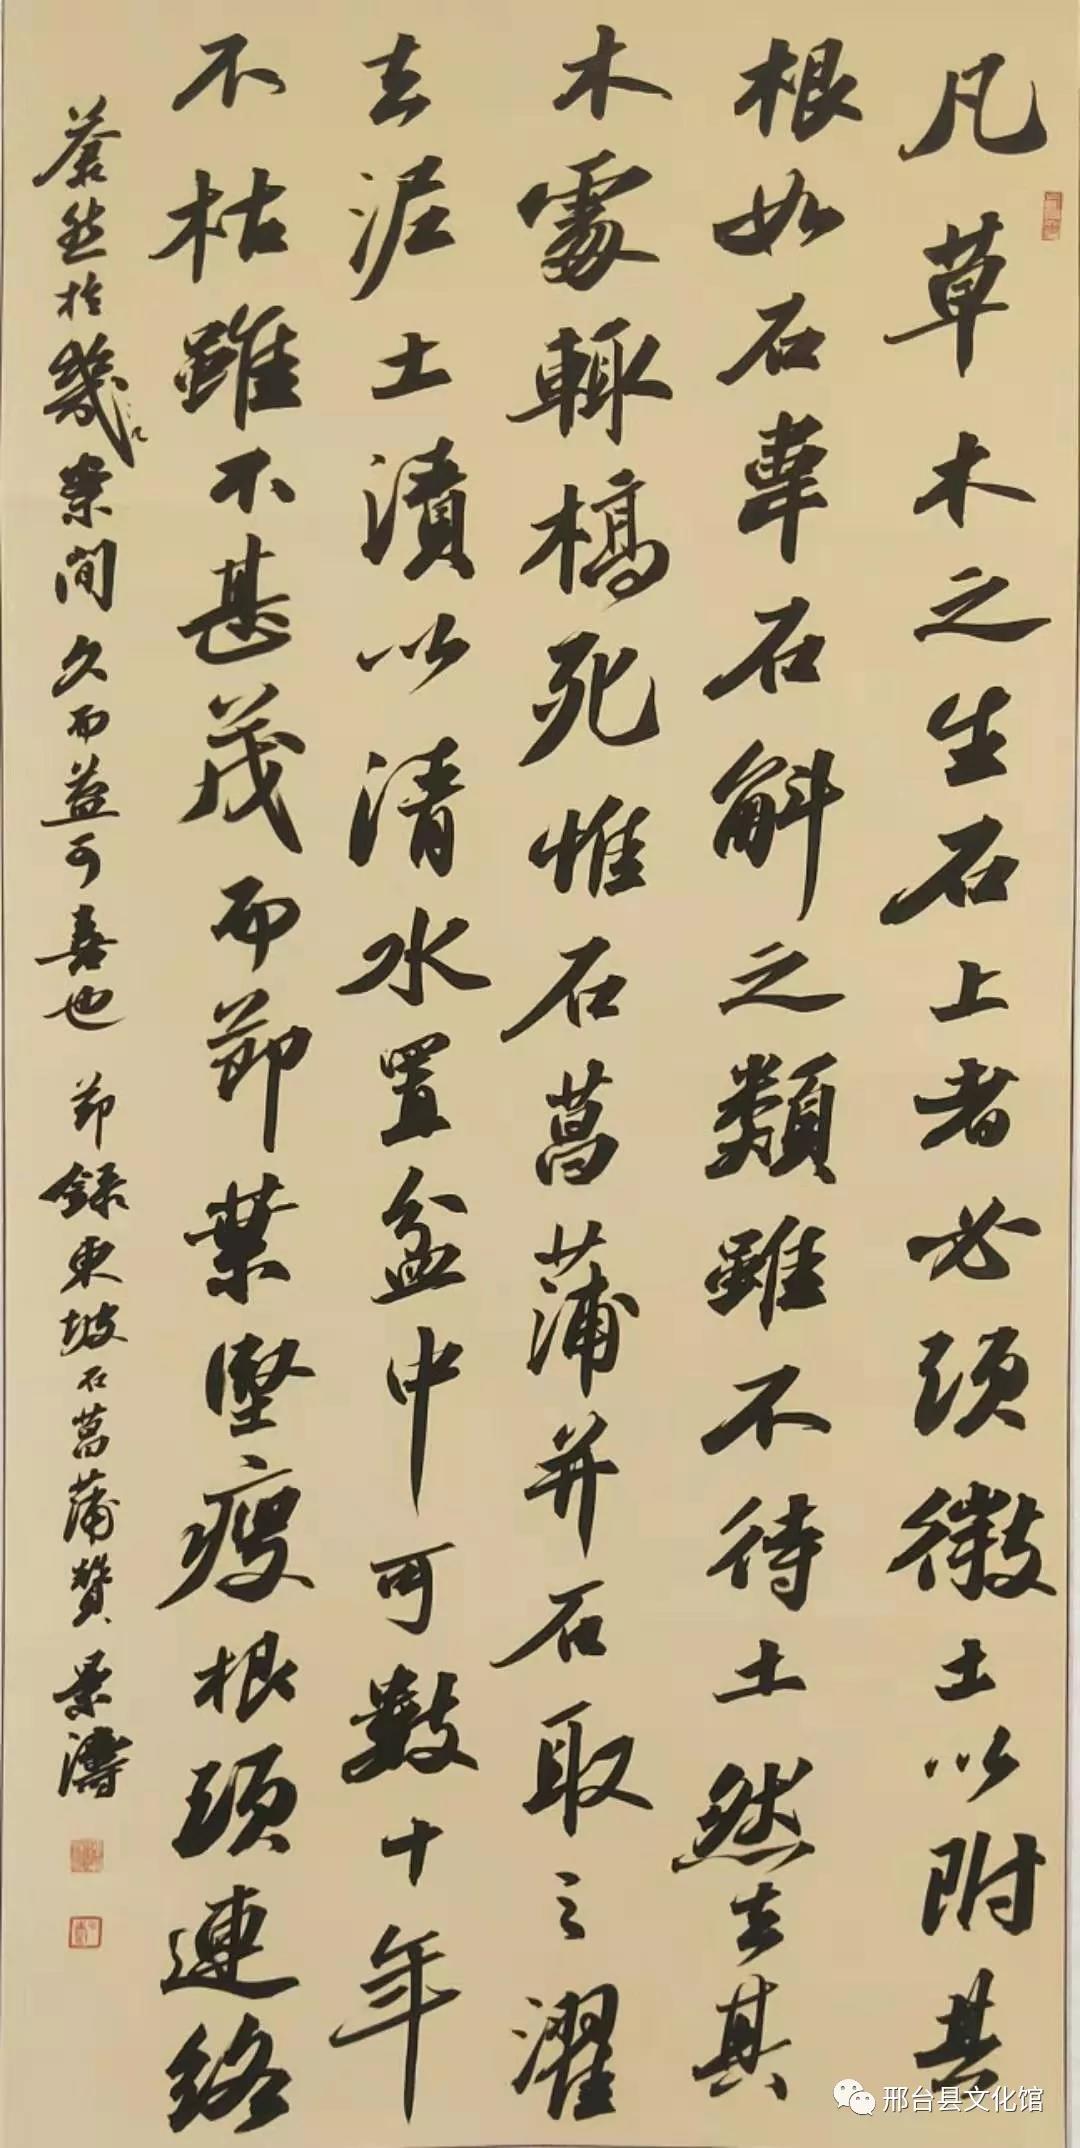 凡草木之生石上者必須微土以附其
根如石韋石斛之類雖不待土然去其
木處輒槁死惟石菖蒲并石取之濯
去泥土漬以清水置盆中可數十年
不枯雖不甚茂而節葉堅瘦根須連絡
蒼然於幾案間久而益可喜也 節錄東坡石菖蒲贊 景濤
邢台县文化馆